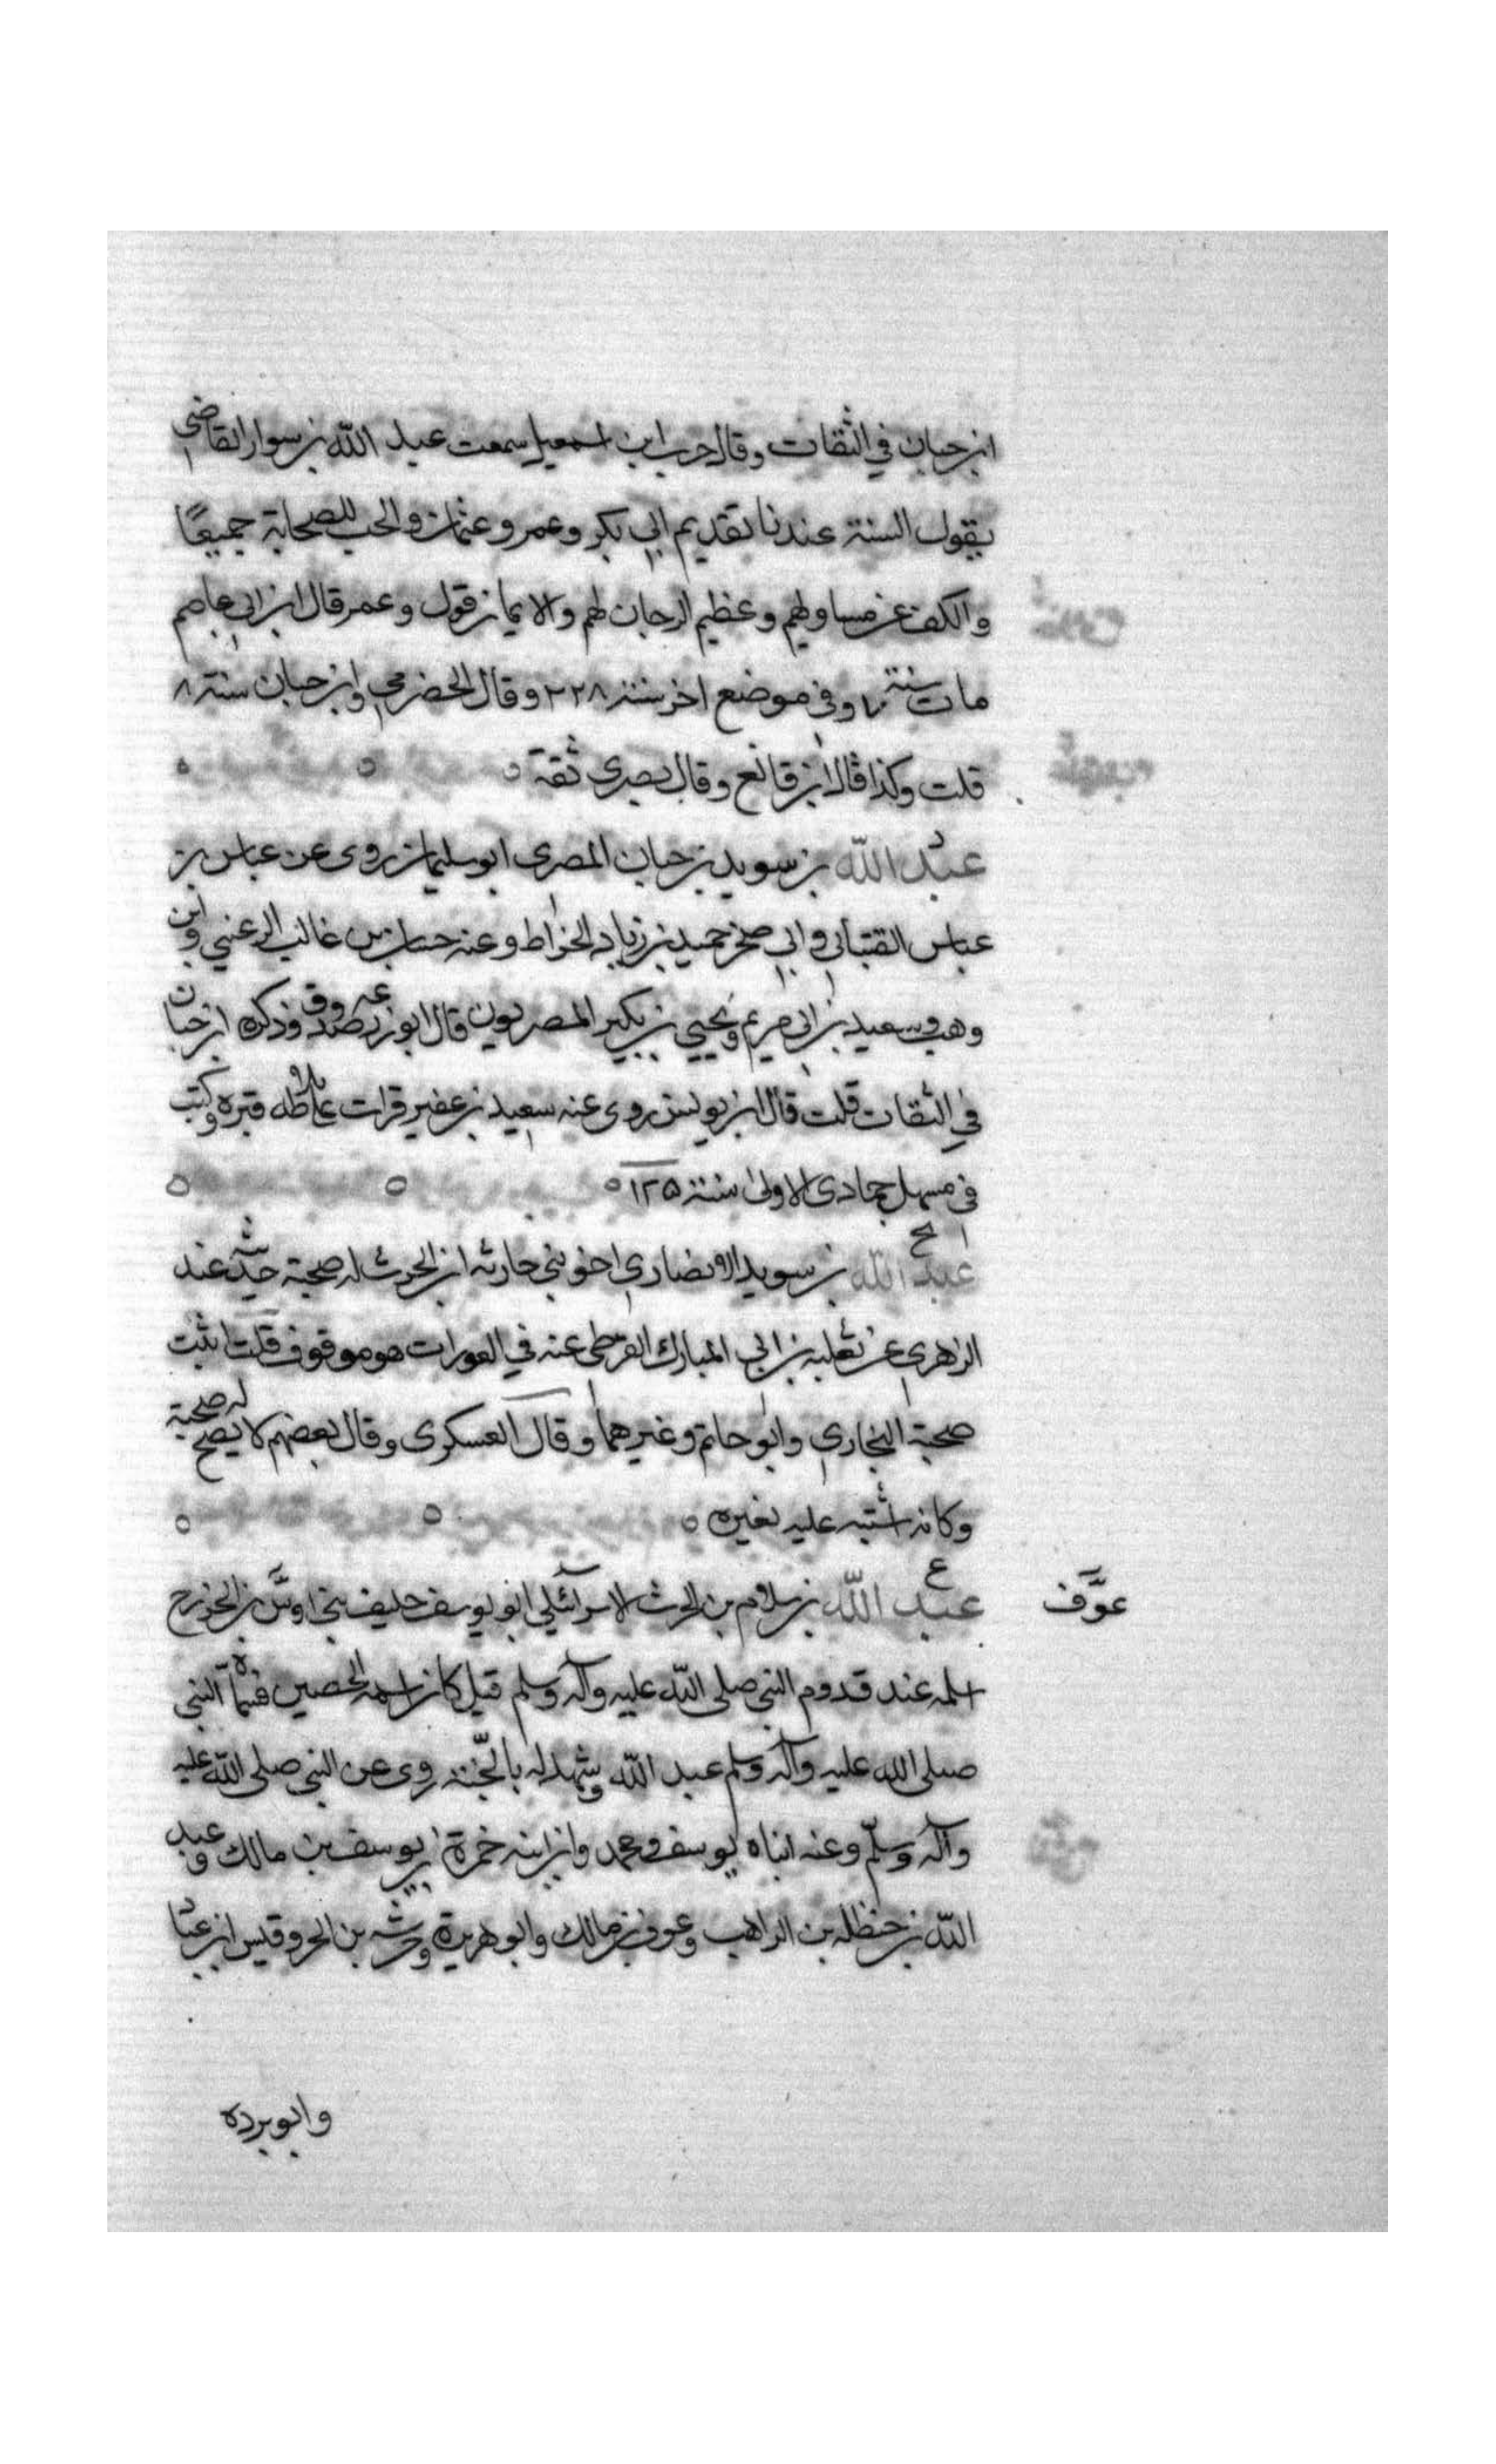 ابن حبان في الثقات وقال حرب ابن اسمعيل سمعت عبد الله بن سوار القاضي
يقول السنة عندنا تقديم ابي بكر وعمر وعثمان والحب للصحابة جميعًا
والكف عن مساويهم وعظيم الرجان لهم والايمان قول وعمر قال ابن ابي عاصم
مات سنة ٧ وفي موضع اخر سنة ٢٢٨ وقال الحضرمي وابن حبان سنة ٨
قلت وكذا قال ابن قانع وقال بصري ثقة
عبد الله بن سويد بن حبان المصري ابو سليمان روى عن عباس بن
عباس القتباني وابي صخر حميد بن زياد الخراط وعنه حسان بن غالب الرعيني وابن
وهب وسعيد بن ابي مريم ويحيى بن بكير المصريون قال ابو زرعه صدوق وذكره ابن حبان
في الثقات قلت قال ابن يونس روى عنه سعيد بن عفير قرات على بلاطه قبره وكتب
في مسهل جمادى الاولى سنة ١٢٥
عبد الله بن سويد الانصاري اخو بني حارثه ابن الحرث له صحبة حديثه عند
الزهري عن ثعلبه بن ابي المبارك القرظي عنه في العورات هو موقوف قلت اثبت
صحبة البخاري وابو حاتم وغيرهما وقال العسكري وقال بعضهم لا يصح له صحبة
وكانه اشتبه عليه بغيره
عوف
ع
عبد الله بن سلام بن الحرث الاسرائيلي ابو يوسف حليف بني اوس بن الخزرج
اسلم عند قدوم النبي صلى الله عليه وآله وسلم قيل كان اسمه الحصين فسماه النبي
صلى الله عليه وآله وسلم عبد الله وشهد له بالجنة روى عن النبي صلى الله عليه
وآله وسلم وعنه ابناه يوسف ومحمد وابن ابنه حمزة بن يوسف بن مالك وعبد
الله بن حنظله بن الراهب وعوف بن مالك وابو هريرة وخرشه بن الحر وقيس ابن عبا
وابو برده